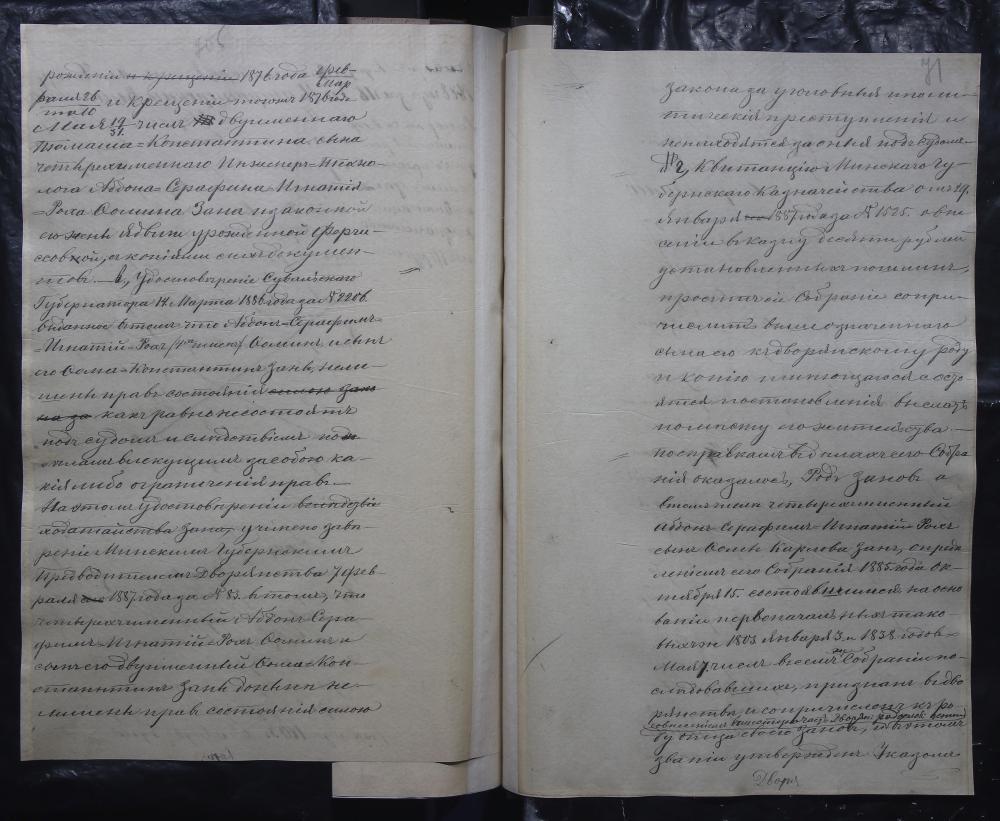 рожденіи и крещеніи 1876 года Фев-
раля 26
Мар
та 10
и крещеніи тогожъ 1876 года
Мая 19/31 числъ двуименнаго
Томаша=Константина сына
четырехъименнаго Инженеръ-Техно-
лога Абдона=Серафима=Игнатія
=Роха Осипина Зана и законной
его жены Ядвиги урожденной
ссовой, съ копіями сихъ докумен-
товъ. — Удостовѣреніе Сувалкскаго
Губернатора 14 Марта 1886 года за № 2206.
выданное в томъ что Абдонъ=Серафимъ-
=Игнатій=Рохъ Осипинъ и сынъ
его Ѳома=Константинъ Занъ, нели-
шены правъ состоянія силою зако
на за какъ равно несостоятъ
подъ судомъ и слѣдствіемъ по
влекущимъ за собою ка-
кія либо ограниченія правъ.
На этомъ удостовѣреніи вслѣдствіе
ходатайства Зана, учинено завѣ-
реніе Минскимъ Губернскимъ
Предводителемъ Дворянства 7 Фев-
раля 1887 года за № 83. в томъ, что
четырехъименный Абдонъ-Сера-
фимъ=Игнатій=Рохъ Осипинъ и
сынъ его двуименный Ѳома=Кон-
стантинъ Занъ донынѣ не-
лишены правъ состоянія силою
71
закона за уголовныя и поли-
тическія преступленія и
ненаходятся за оныя подъ судомъ
Квитанцію Минскаго Гу-
бернскаго Казначейства отъ 29
Января 1887 года за № 1525. о вне-
сеніи в казну десяти рублей
установленныхъ пошлинъ,
проситъ сіе Собраніе сопри-
числить вышеозначеннаго
сына его къ дворянскому роду
и копію имѣющагося состо-
яться постановленія выслать
по мѣсту его жительства. —
По справкамъ в дѣлахъ сего Собра
нія оказалось, Родъ Зановъ а
в томъ числѣ четырехъименный
Абдонъ Серафимъ=Игнатій-Рохъ
сынъ Осипа Карлова Занъ, опредѣ
леніемъ сего Собранія 1885 года Ок-
тября 15. состоявшимся на осно
ваніи первоначальныхъ тако-
выхъ же 1803 Января 3. и 1838 годовъ
Мая 7. числъ в семъ же Собраніи по-
слѣдовавшихъ, признанъ в дво
рянствѣ и сопричисленъ къ ро-
ду отца своего Зановъ, и в этомъ
званіи утвержденъ Указомъ
Дворя